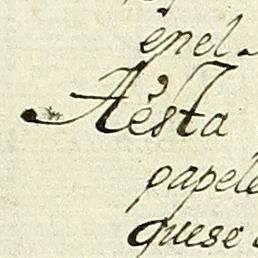 énel
Aésta
papele
quese